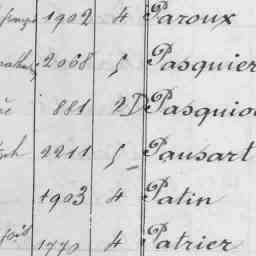 1902 4 Paroux
2068 5 Pasquier
881 2D Pasquio
2211 5 Pausart
1903 4 Patin
1770 4 Patrier